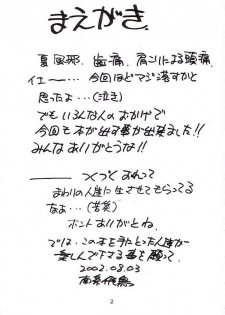 まえがき
夏風邪、歯痛、肩こりによる頭痛
イエー…今回ほどマジ落すかと
思ったよ…(泣き)
でもいろんな人のおかげで
今回も本が出す事が出来ました!!
みんなありがとうな!!
つくづくおれって
まわりの人達に生させてもらってる
なぁ…(苦笑)
ホントありがとね
では、この本を手にとった人達が
楽しんで下さる事を願って
2002.08.03
2